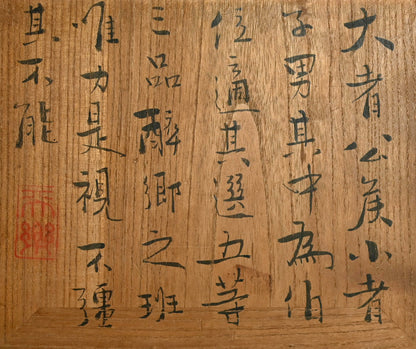 大者公侯小者
子男其中為伯
位適其選五等
三品醉鄉之班
唯力是視不彊
其不能